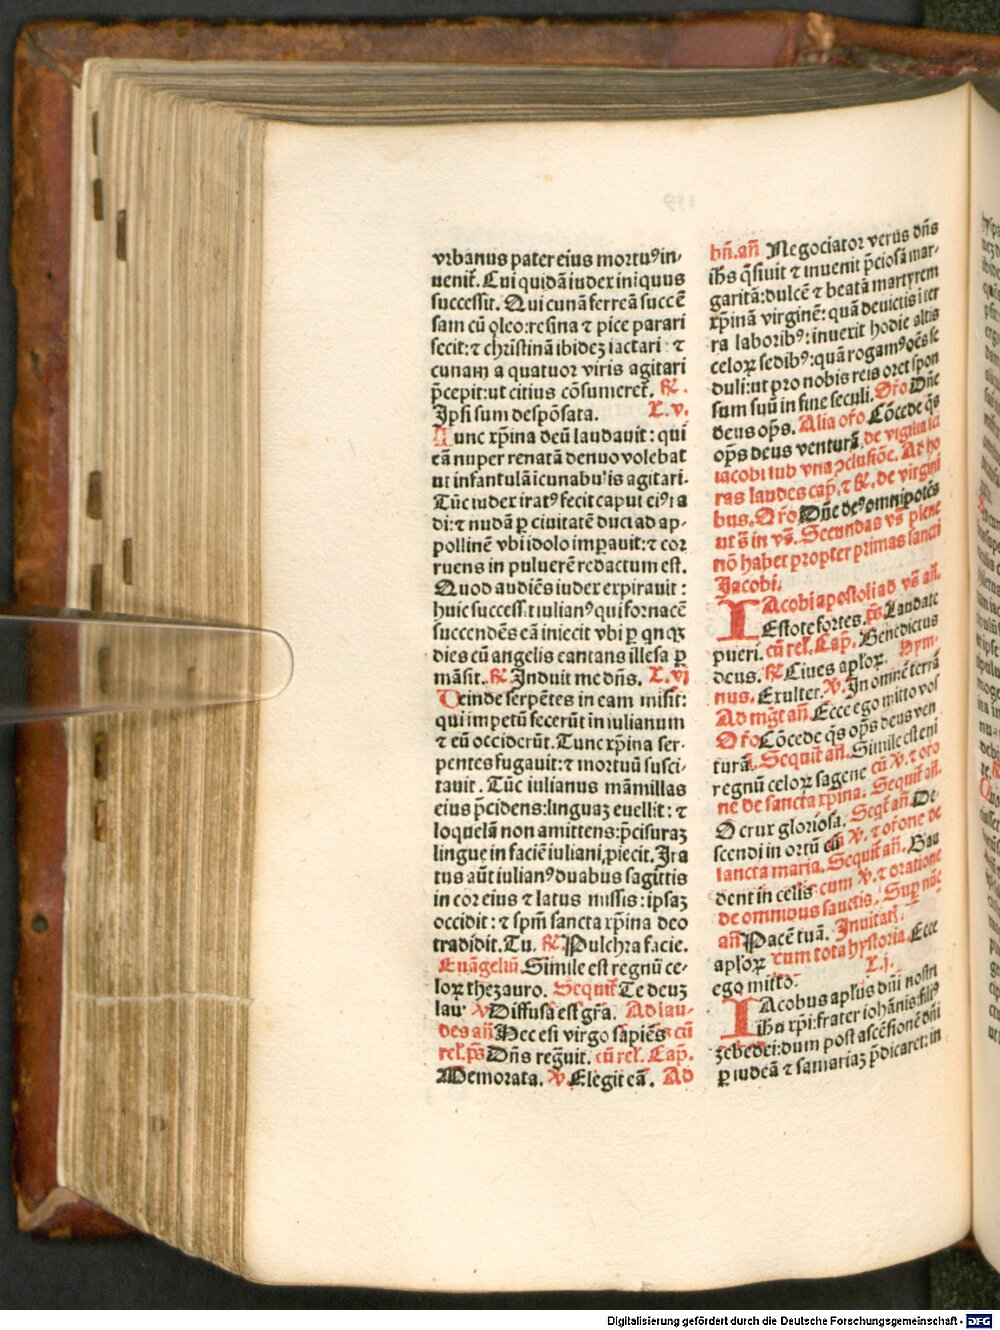 vrbanus pater eius mortuꝰ in-
uenit̃. Cui quidã iudex iniquus
successit. Qui cunã ferreã succẽ
sam cũ oleo: resina ⁊ pice parari
fecit: ⁊ christinã ibidez iactari: ⁊
cunam a quatuor viris agitari
p̄cepit: vt citius cõsumeret̃. ℟.
Ipsi sum despõsata. L. v.
Tunc xp̃ina deũ laudauit: qui
eã nuper renatã denuo volebat
ut infantulã icunabulis agitari.
Tũc iudex iratꝰ fecit caput eiꝰ ra
di: ⁊ nudã ꝑ ciuitatẽ duci ad ap-
pollinẽ vbi idolo imꝑauit: ⁊ cor
ruens in puluerẽ redactum est.
Quod audiẽs iudex expirauit:
huic success̃it iulianꝰ qui fornacẽ
succendẽs eã iniecit vbi ꝑ qnqꝫ
dies cũ angelis cantans illesa ꝑ
mãsit. ℟ Induit me dñs. L. vj
Deinde serpẽtes in eam misit:
qui impetũ fecerũt in iulianum
⁊ eũ occiderũt. Tunc xp̃ina ser-
pentes fugauit: ⁊ mortuũ susci-
tauit. Tũc iulianus mãmillas
eius p̄cidens: linguaz euellit: ⁊
loquelã non amittens: p̄cisuraz
lingue in faciẽ iuliani ꝓiecit. Ira
tus aũt iulianꝰ duabus sagittis
in cor eius ⁊ latus missis: ipsaz
occidit: ⁊ spm̃ sancta xp̃ina deo
tradidit. Tu. ℟ Pulchra facie.
Euãgeliũ. Simile est regnũ ce-
loꝝ thezauro. Sequit̃ Te deuz
lau ℣ Diffusa est gr̃a. Ad lau-
des añ Hec est virgo sapiẽs cũ
rel̃. ps̃ Dñs reg̃uit. cũ rel̃. Cap̃.
Memorata. ℣ Elegit eã. Ad
bñ. añ Negociator verus dñs
ihs q̃siuit ⁊ inuenit p̄ciosã mar-
garitã: dulcẽ ⁊ beatã martyrem
xp̃inã virginẽ: quã deuictis iter
ra laboribꝰ: inuexit hodie altis
celoꝝ sedibꝰ: quã rogamꝰ oẽs se
duli: ut pro nobis reis oret spon
sum suũ in fine seculi. Or̃o Dñe
deus op̃s. Alia or̃o. Cõcede q̃s
op̃s deus venturã. de vigilia sci
iacobi sub vna ↄclusiõe. Ad ho
ras laudes cap̃. ⁊ ℟. de virgini
bus. Or̃o Dñe deꝰ omnipotẽs
ut s̃ in vs̃. Secundas vs̃ plene
nõ habet propter primas sancti
Jacobi.
IAcobi apostoli ad vs̃ añ.
Estote fortes. ps̃ Laudate
pueri. cũ rel̃. Cap̃. Benedictus
deus. ℟ Ciues apl̃oꝝ. Hym-
nus. Exultet. ℣. In omnẽ terrã
Ad mg̃t añ. Ecce ego mitto vos
Or̃o Cõcede q̃s op̃s deus ven
turã. Sequit̃ añ. Simile est eni
regnũ celoꝝ sagene cũ ℣. ⁊ or̃o
ne de sancta xp̃ina. Sequit̃ añ.
O crux gloriosa. Seqt̃ añ. De
scendi in ortũ cũ ℣. ⁊ or̃one de
sancta maria. Sequit̃ añ. Gau
dent in celis cum ℣. ⁊ oratione
de omnibus sanctis. Suꝑ nũc
añ Pacẽ tuã. Inuitat̃.
apl̃oꝝ cum tota hystoria. Ecce
ego mitto. L. j.
IAcobus apl̃us dñi nostri
ihũ xp̃i: frater iohãnis: filiꝰ
zebedei: dum post ascẽsionẽ dñi
ꝑ iudeã ⁊ samariaz p̄dicaret: in
Digitalisierung gefördert durch die Deutsche Forschungsgemeinschaft - DFG